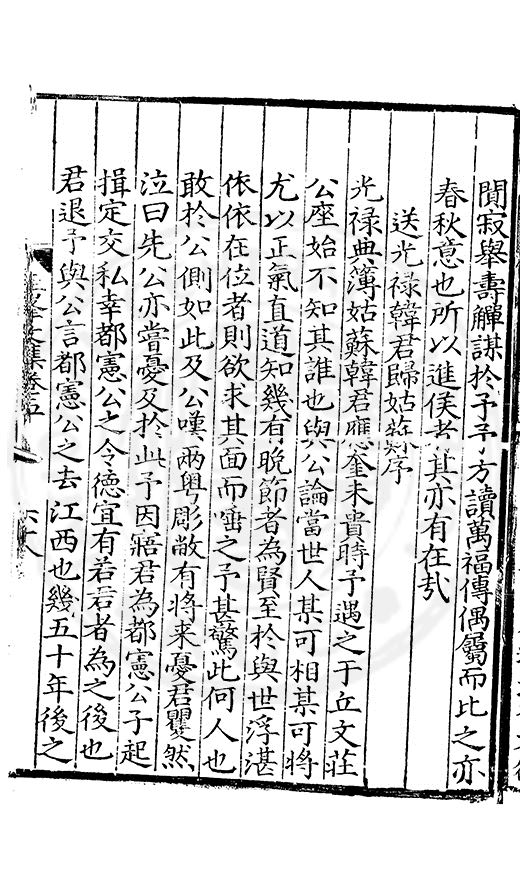 閒寂舉壽觶謀扵予予方讀萬福傳偶屬而比之亦
春秋意也所以進侯者其亦有在㢤
送光禄韓君歸姑蘇序
光禄典簿姑蘇韓君應奎未貴時予遇之于丘文莊
公座始不知其誰也與公論當世人某可相某可將
尤以正氣直道知幾有晩節者為賢至扵與世浮湛
依依在位者則欲求其面而唾之予甚驚此何人也
敢扵公側如此及公嘆兩粤彫敝有将来憂君瞿然
泣曰先公亦嘗憂及扵此予因寤君為都憲公子起
揖定交私幸都憲公之令德宜有若君者為之後也
君退予與公言都憲公之去江西也幾五十年後之
文集卷五